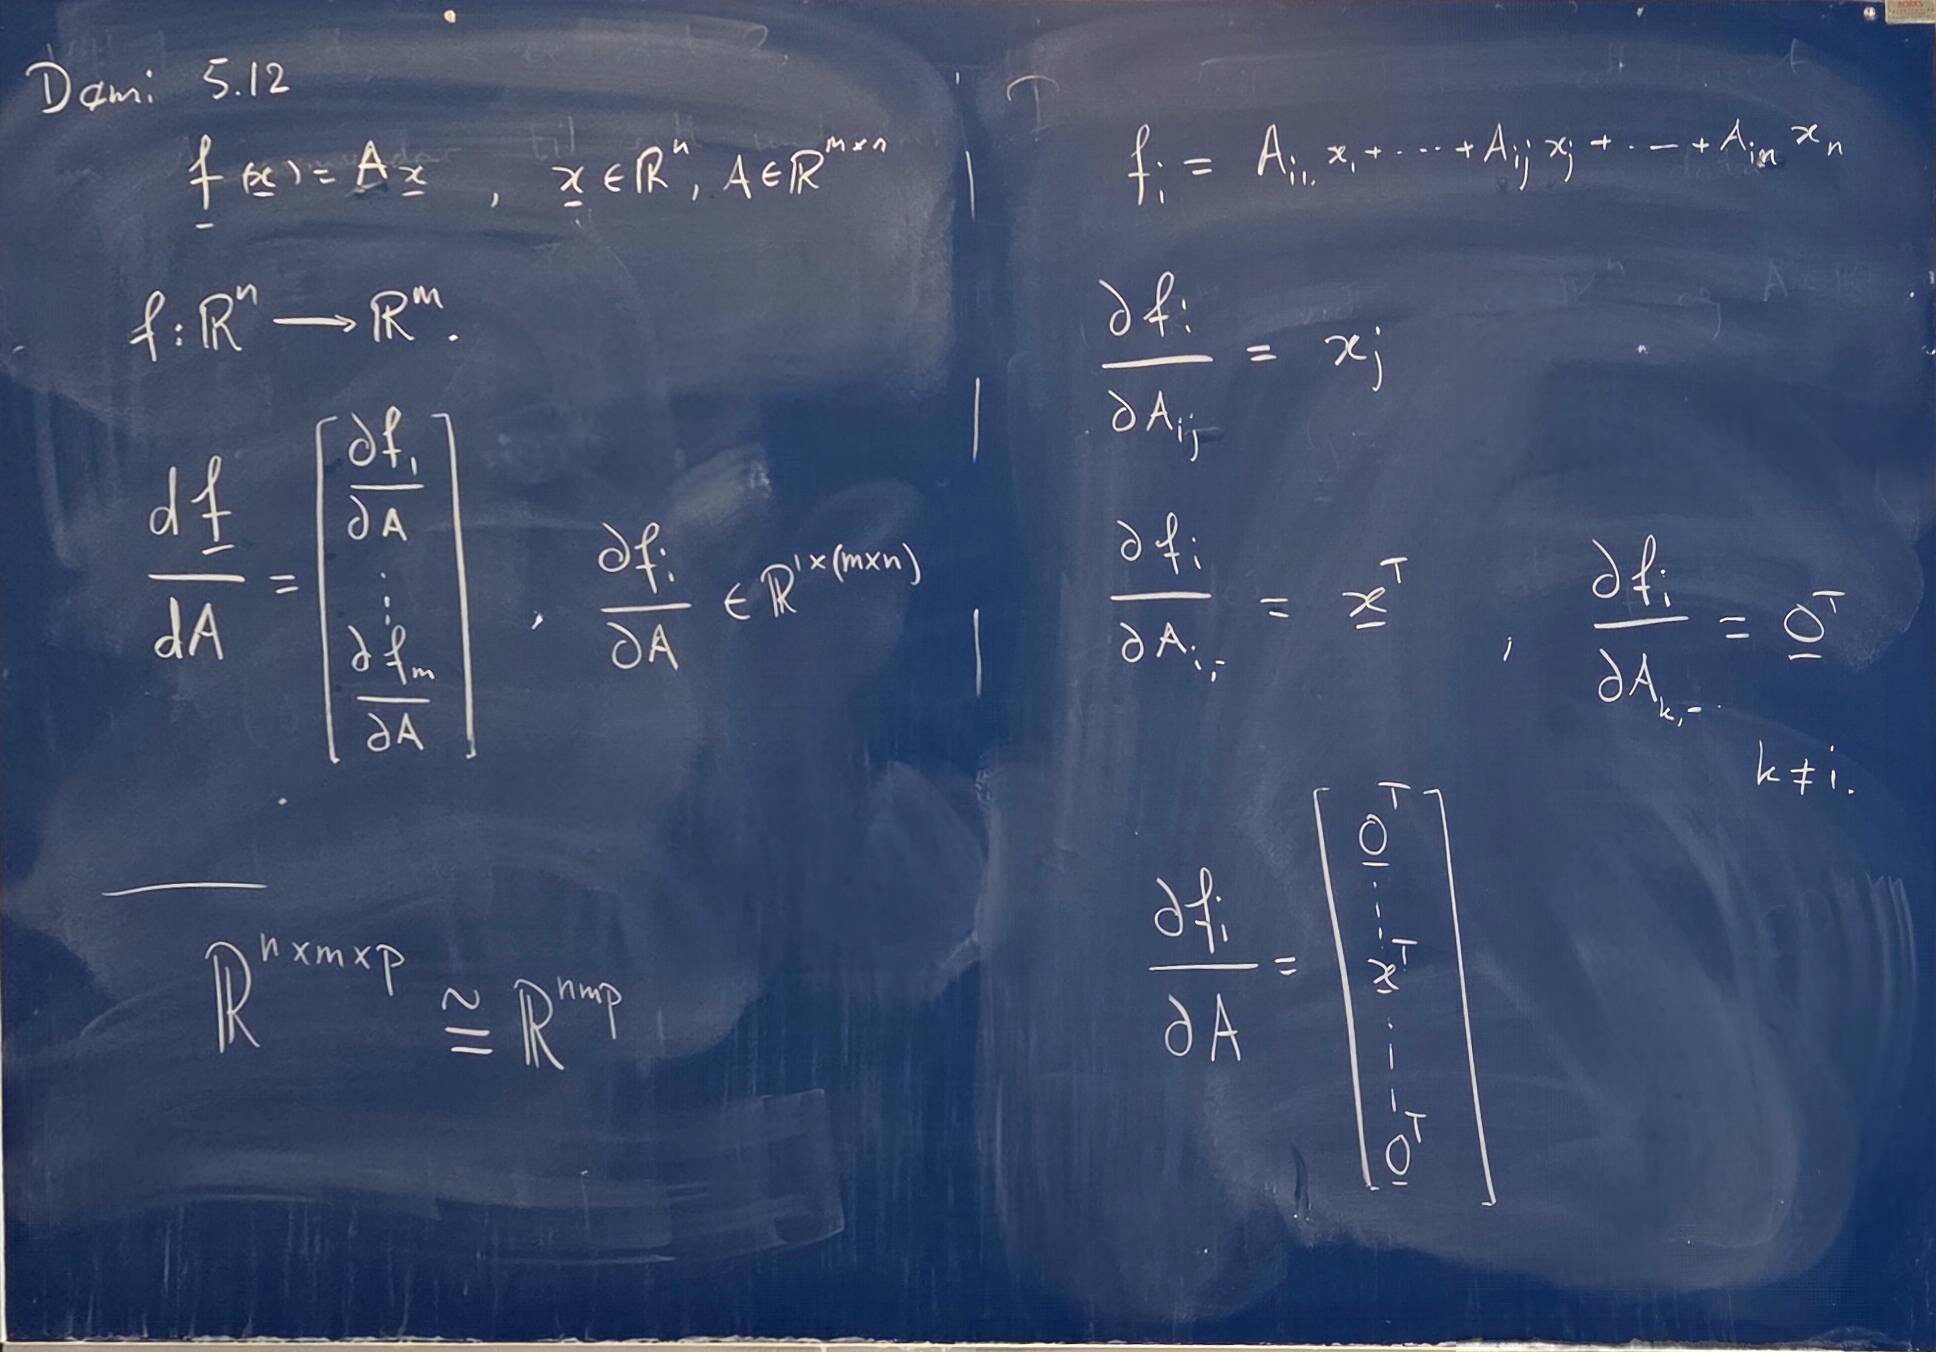 Dæmi 5.12
f(x) = A x , x ∈ ℝⁿ, A ∈ ℝ^{m×n}
f : ℝⁿ → ℝᵐ.
df/dA = [ ∂f₁/∂A ⋮ ∂fₘ/∂A ] , ∂fᵢ/∂A ∈ ℝ^{1×(m×n)}
ℝ^{n×m×p} ≅ ℝ^{nmp}
fᵢ = A_{i1} x₁ + ⋯ + A_{ij} x_j + ⋯ + A_{in} xₙ
∂fᵢ/∂A_{ij} = x_j
∂fᵢ/∂A_{i,-} = xᵀ , ∂fᵢ/∂A_{k,-} = 0ᵀ
k ≠ i.
∂fᵢ/∂A = [ 0ᵀ ⋮ xᵀ ⋮ 0ᵀ ]